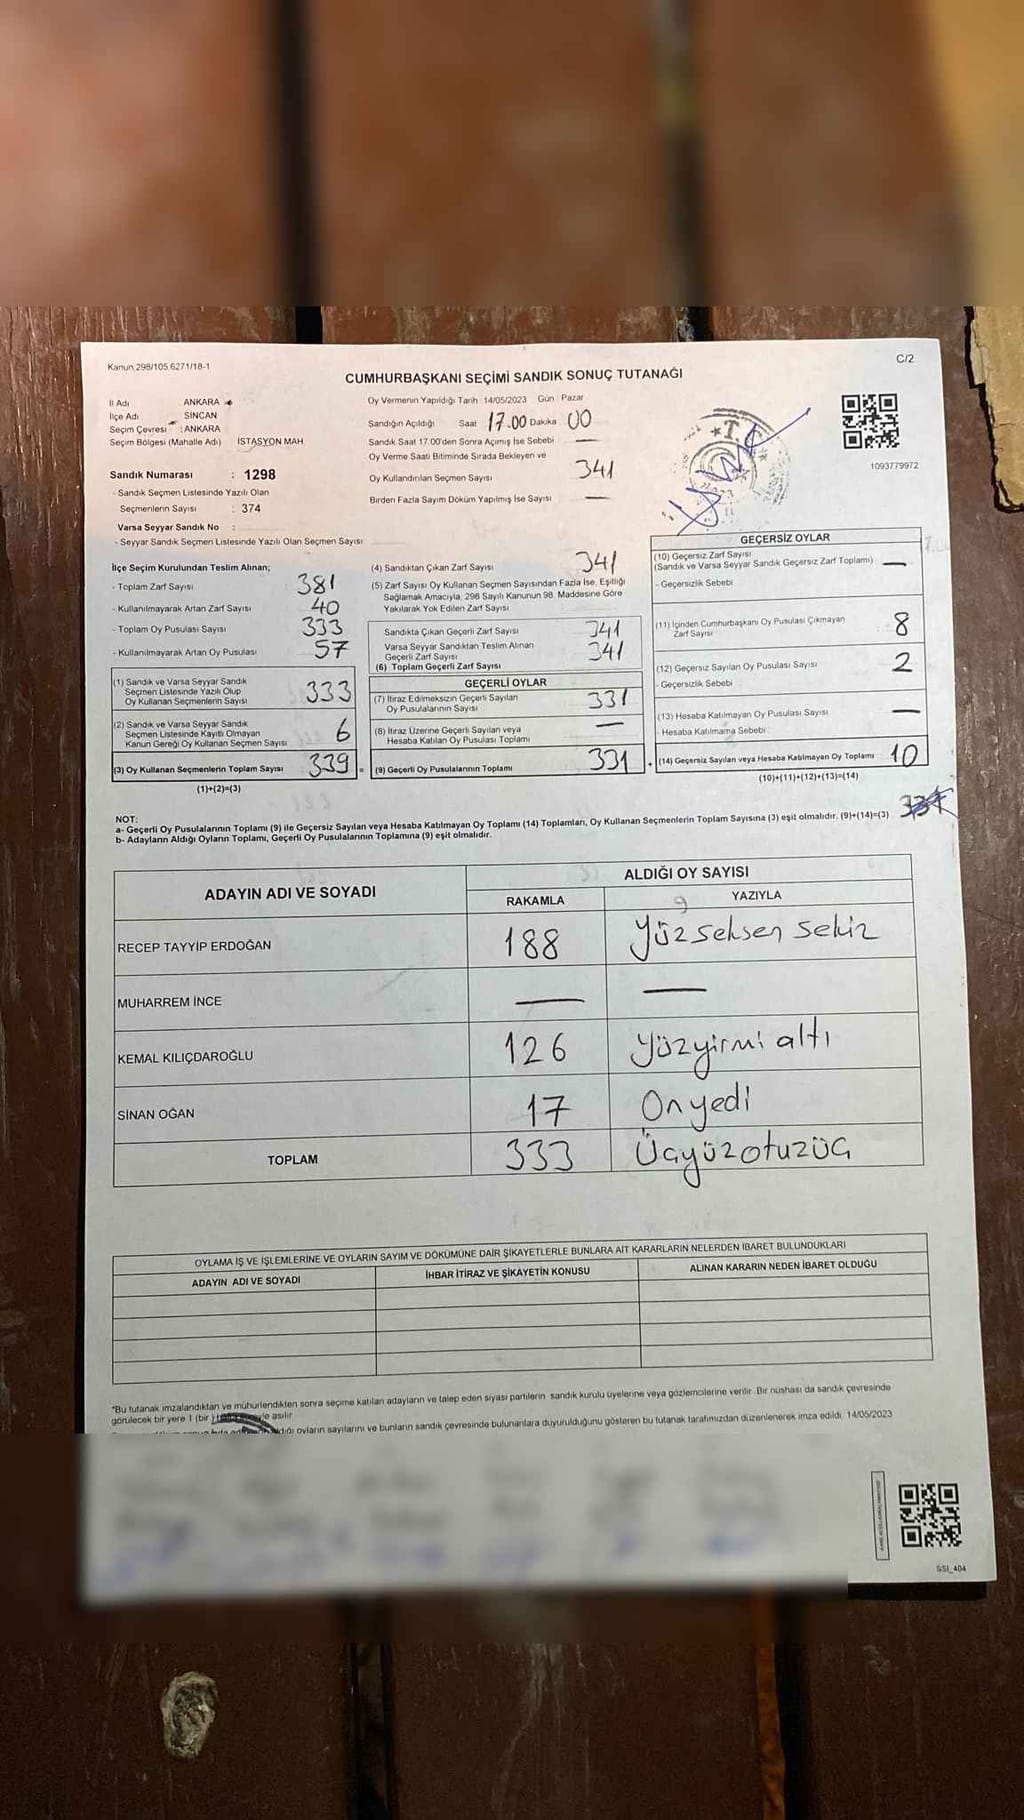 Kanun 298/105,6271/18-1
C/2
CUMHURBAŞKANI SEÇİMİ SANDIK SONUÇ TUTANAĞI
İl Adı ANKARA
İlçe Adı SİNCAN
Seçim Çevresi : ANKARA
Seçim Bölgesi (Mahalle Adı) İSTASYON MAH
Sandık Numarası : 1298
- Sandık Seçmen Listesinde Yazılı Olan
Seçmenlerin Sayısı : 374
Varsa Seyyar Sandık No :
- Seyyar Sandık Seçmen Listesinde Yazılı Olan Seçmen Sayısı
Oy Vermenin Yapıldığı Tarih 14/05/2023 Gün Pazar
Sandığın Açıldığı Saat 17.00 Dakika 00
Sandık Saat 17.00'den Sonra Açmış İse Sebebi —
Oy Verme Saati Bitiminde Sırada Bekleyen ve
Oy Kullandırılan Seçmen Sayısı 341
Birden Fazla Sayım Döküm Yapılmış İse Sayısı —
T.C.
1093779972
İlçe Seçim Kurulundan Teslim Alınan;
- Toplam Zarf Sayısı 381
- Kullanılmayarak Artan Zarf Sayısı 40
- Toplam Oy Pusulası Sayısı 333
- Kullanılmayarak Artan Oy Pusulası 57
(1) Sandık ve Varsa Seyyar Sandık
Seçmen Listesinde Yazılı Olup
Oy Kullanan Seçmenlerin Sayısı 333
(2) Sandık ve Varsa Seyyar Sandık
Seçmen Listesinde Kayıtlı Olmayan
Kanun Gereği Oy Kullanan Seçmen Sayısı 6
(3) Oy Kullanan Seçmenlerin Toplam Sayısı 339 =
(1)+(2)=(3)
(4) Sandıktan Çıkan Zarf Sayısı 341
(5) Zarf Sayısı Oy Kullanan Seçmen Sayısından Fazla İse, Eşitliği
Sağlamak Amacıyla, 298 Sayılı Kanunun 98. Maddesine Göre
Yakılarak Yok Edilen Zarf Sayısı
Sandıkta Çıkan Geçerli Zarf Sayısı 341
Varsa Seyyar Sandıktan Teslim Alınan
Geçerli Zarf Sayısı 341
(6) Toplam Geçerli Zarf Sayısı
GEÇERLİ OYLAR
(7) İtiraz Edilmeksizin Geçerli Sayılan
Oy Pusulalarının Sayısı 331
(8) İtiraz Üzerine Geçerli Sayılan veya
Hesaba Katılan Oy Pusulası Toplamı —
(9) Geçerli Oy Pusulalarının Toplamı 331 +
GEÇERSİZ OYLAR
(10) Geçersiz Zarf Sayısı
(Sandık ve Varsa Seyyar Sandık Geçersiz Zarf Toplamı) —
- Geçersizlik Sebebi
(11) İçinden Cumhurbaşkanı Oy Pusulası Çıkmayan
Zarf Sayısı 8
(12) Geçersiz Sayılan Oy Pusulası Sayısı 2
- Geçersizlik Sebebi
(13) Hesaba Katılmayan Oy Pusulası Sayısı —
- Hesaba Katılmama Sebebi
(14) Geçersiz Sayılan veya Hesaba Katılmayan Oy Toplamı 10
(10)+(11)+(12)+(13)=(14)
NOT:
a- Geçerli Oy Pusulalarının Toplamı (9) ile Geçersiz Sayılan veya Hesaba Katılmayan Oy Toplamı (14) Toplamları, Oy Kullanan Seçmenlerin Toplam Sayısına (3) eşit olmalıdır. (9)+(14)=(3)
b- Adayların Aldığı Oyların Toplamı, Geçerli Oy Pusulalarının Toplamına (9) eşit olmalıdır.
ADAYIN ADI VE SOYADI
ALDIĞI OY SAYISI
RAKAMLA YAZIYLA
RECEP TAYYİP ERDOĞAN 188 Yüzseksen sekiz
MUHARREM İNCE — —
KEMAL KILIÇDAROĞLU 126 Yüzyirmi altı
SİNAN OĞAN 17 Onyedi
TOPLAM 333 Üçyüzotuzüç
OYLAMA İŞ VE İŞLEMLERİNE VE OYLARIN SAYIM VE DÖKÜMÜNE DAİR ŞİKAYETLERLE BUNLARA AİT KARARLARIN NELERDEN İBARET BULUNDUKLARI
ADAYIN ADI VE SOYADI İHBAR İTİRAZ VE ŞİKAYETİN KONUSU ALINAN KARARIN NEDEN İBARET OLDUĞU
*Bu tutanak imzalandıktan ve mühürlendikten sonra seçime katılan adayların ve talep eden siyasi partilerin sandık kurulu üyelerine veya gözlemcilerine verilir. Bir nüshası da sandık çevresinde
görülecek bir yere 1 (bir) asılır.
oyların sayılarını ve bunların sandık çevresinde bulunanlara duyurulduğunu gösteren bu tutanak tarafımızdan düzenlenerek imza edildi. 14/05/2023
SSI_404